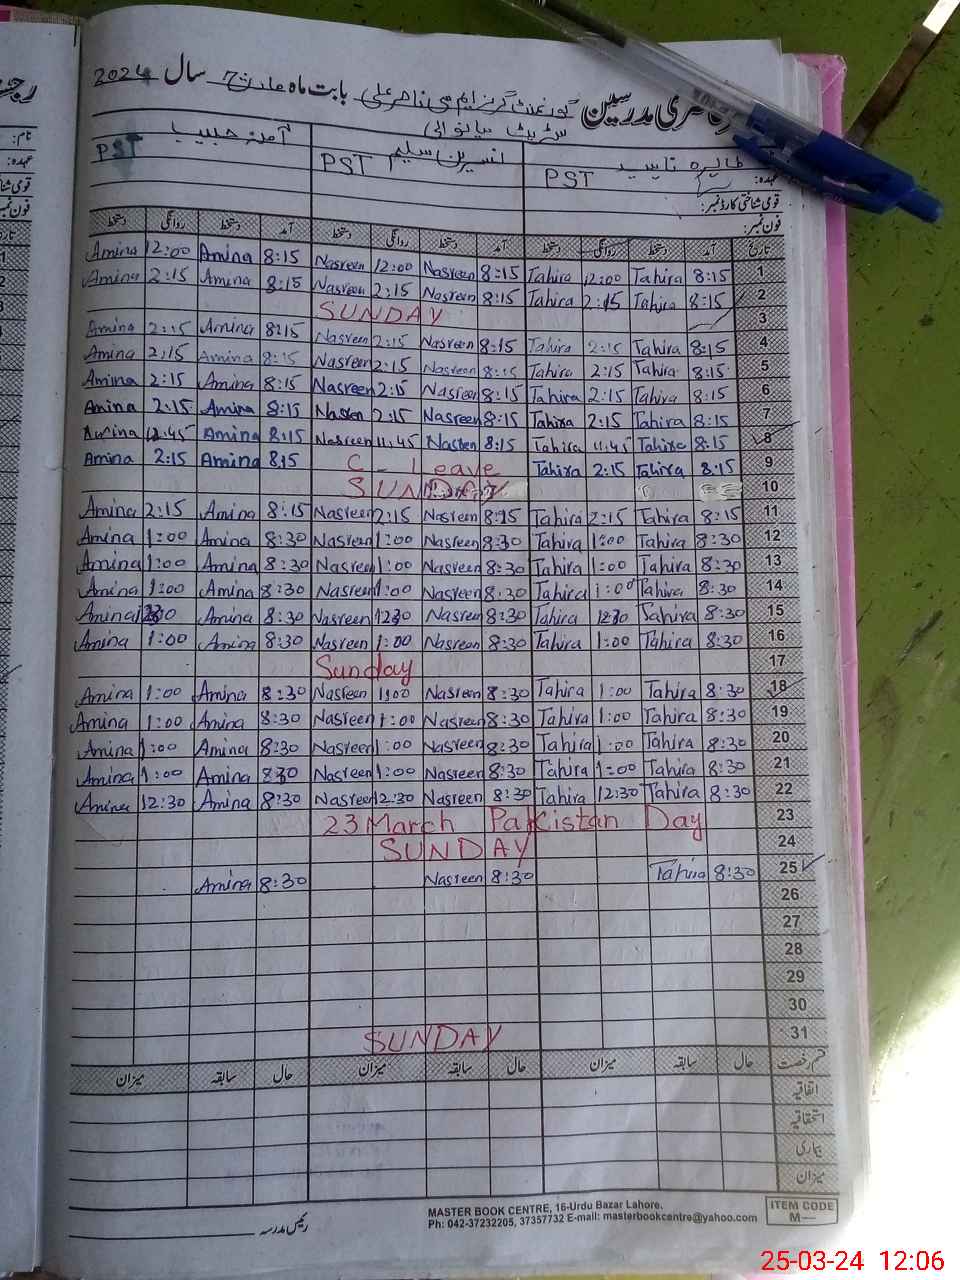 حاضری مدرسین گورنمنٹ گرلز ایم سی ناصر علی بابت ماہ مارچ سال 2024
سٹریٹ میانوالی
طاہرہ PST نسرین سلیم PST آمنہ حبیب PST
عہدہ:
قومی شناختی کارڈ نمبر:
فون نمبر:
تاریخ آمد دستخط روانگی دستخط آمد دستخط روانگی دستخط آمد دستخط روانگی دستخط
Amina 12:00 Amina 8:15 Nasreen 12:00 Nasreen 8:15 Tahira 12:00 Tahira 8:15 1
Amina 2:15 Amina 8:15 Nasreen 2:15 Nasreen 8:15 Tahira 2:15 Tahira 8:15 2
SUNDAY 3
Amina 2:15 Amina 8:15 Nasreen 2:15 Nasreen 8:15 Tahira 2:15 Tahira 8:15 4
Amina 2:15 Amina 8:15 Nasreen 2:15 Nasreen 8:15 Tahira 2:15 Tahira 8:15 5
Amina 2:15 Amina 8:15 Nasreen 2:15 Nasreen 8:15 Tahira 2:15 Tahira 8:15 6
Amina 2:15 Amina 8:15 Nasreen 2:15 Nasreen 8:15 Tahira 2:15 Tahira 8:15 7
Amina Amina 8:15 Nasreen 11:45 Nasreen 8:15 Tahira 11:45 Tahira 8:15 8
Amina 2:15 Amina 8:15 C- Leave Tahira 2:15 Tahira 8:15 9
SUNDAY 10
Amina 2:15 Amina 8:15 Nasreen 2:15 Nasreen 8:15 Tahira 2:15 Tahira 8:15 11
Amina 1:00 Amina 8:30 Nasreen 1:00 Nasreen 8:30 Tahira 1:00 Tahira 8:30 12
Amina 1:00 Amina 8:30 Nasreen 1:00 Nasreen 8:30 Tahira 1:00 Tahira 8:30 13
Amina 1:00 Amina 8:30 Nasreen 1:00 Nasreen 8:30 Tahira 1:00 Tahira 8:30 14
Amina Amina 8:30 Nasreen 12:30 Nasreen 8:30 Tahira 12:30 Tahira 8:30 15
Amina 1:00 Amina 8:30 Nasreen 1:00 Nasreen 8:30 Tahira 1:00 Tahira 8:30 16
Sunday 17
Amina 1:00 Amina 8:30 Nasreen 1:00 Nasreen 8:30 Tahira 1:00 Tahira 8:30 18
Amina 1:00 Amina 8:30 Nasreen 1:00 Nasreen 8:30 Tahira 1:00 Tahira 8:30 19
Amina 1:00 Amina 8:30 Nasreen 1:00 Nasreen 8:30 Tahira 1:00 Tahira 8:30 20
Amina 1:00 Amina 8:30 Nasreen 1:00 Nasreen 8:30 Tahira 1:00 Tahira 8:30 21
Amina 12:30 Amina 8:30 Nasreen 12:30 Nasreen 8:30 Tahira 12:30 Tahira 8:30 22
23 March Pakistan Day 23
SUNDAY 24
Amina 8:30 Nasreen 8:30 Tahira 8:30 25
26
27
28
29
30
SUNDAY 31
قسم رخصت حال سابقہ میزان حال سابقہ میزان حال سابقہ میزان
اتفاقیہ
استحقاقیہ
بیماری
میزان
رئیس مدرسہ
MASTER BOOK CENTRE, 16-Urdu Bazar Lahore.
Ph: 042-37232205, 37357732 E-mail: masterbookcentre@yahoo.com
ITEM CODE
M—
25-03-24 12:06